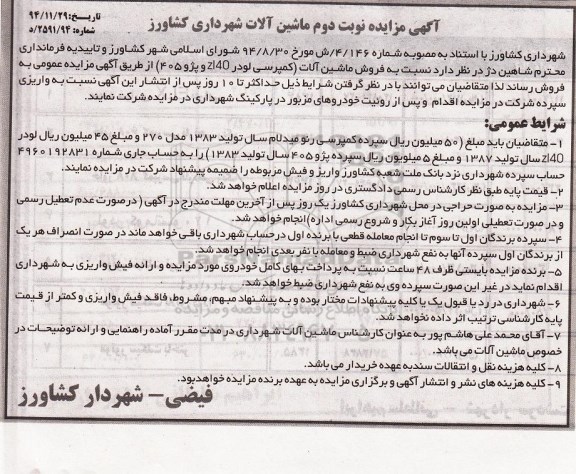 تاریخ: ۹۴/۱۱/۲۹
شماره: ۵/۲۵۹۱/۹۴
آگهی مزایده نوبت دوم ماشین آلات شهرداری کشاورز
شهرداری کشاورز با استناد به مصوبه شماره ۴/۱۴۶/ش مورخ ۹۴/۸/۳۰ شورای اسلامی شهر کشاورز و تاییدیه فرمانداری
محترم شاهین دژ در نظر دارد نسبت به فروش ماشین آلات (کمپرسی لودر zl40 و پژو ۴۰۵) از طریق آگهی مزایده عمومی به
فروش رساند لذا متقاضیان می توانند با در نظر گرفتن شرایط ذیل حداکثر تا ۱۰ روز پس از انتشار این آگهی نسبت به واریزی
سپرده شرکت در مزایده اقدام و پس از رونیت خودروهای مزبور در پارکینگ شهرداری در مزایده شرکت نمایند.
شرایط عمومی:
۱- متقاضیان باید مبلغ (۵۰ میلیون ریال سپرده کمپرسی رنو میدلام سال تولید ۱۳۸۳ مدل ۲۷۰ و مبلغ ۴۵ میلیون ریال لودر
zl40 سال تولید ۱۳۸۷ و مبلغ ۵ میلویون ریال سپرده پژو ۴۰۵ سال تولید ۱۳۸۳) را به حساب جاری شماره ۴۹۶۰۱۹۲۸۳۱
حساب سپرده شهرداری نزد بانک ملت شعبه کشاورز واریز و فیش مربوطه را ضمیمه پیشنهاد شرکت در مزایده نمایند.
۲- قیمت پایه طبق نظر کارشناس رسمی دادگستری در روز مزایده اعلام خواهد شد.
۳- مزایده به صورت حراجی در محل شهرداری کشاورز یک روز پس از آخرین مهلت مندرج در آگهی (در صورت عدم تعطیل رسمی
و در صورت تعطیلی اولین روز آغاز بکار و شروع رسمی اداره) انجام خواهد شد.
۴- سپرده برندگان اول تا سوم تا انجام معامله قطعی با برنده اول در حساب شهرداری باقی خواهد ماند در صورت انصراف هر یک
از برندگان اول سپرده آنها به نفع شهرداری ضبط و معامله با نفر بعدی انجام خواهد شد.
۵- برنده مزایده بایستی ظرف ۴۸ ساعت نسبت به پرداخت بهای کامل خودروی مورد مزایده و ارائه فیش واریزی به شهرداری
اقدام نماید در غیر این صورت سپرده وی به نفع شهرداری ضبط خواهد شد.
۶- شهرداری در رد یا قبول یک یا کلیه پیشنهادات مختار بوده و به پیشنهاد مبهم، مشروط، فاقد فیش واریزی و کمتر از قیمت
پایه کارشناسی ترتیب اثر داده نخواهد شد.
۷- آقای محمد علی هاشم پور به عنوان کارشناس ماشین آلات شهرداری در مدت مقرر آماده راهنمایی و ارائه توضیحات در
خصوص ماشین آلات می باشد.
۸- کلیه هزینه نقل و انتقالات سند به عهده خریدار می باشد.
۹- کلیه هزینه های نشر و انتشار آگهی و برگزاری مزایده به عهده برنده مزایده خواهد بود.
فیضی- شهردار کشاورز